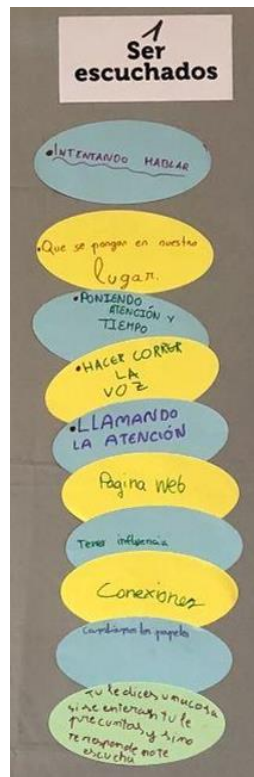 1
Ser
escuchados
•INTENTANDO HABLAR
•Que se pongan en nuestro
lugar.
•PONIENDO
ATENCIÓN Y
TIEMPO
•HACER CORRER
LA
VOZ
•LLAMANDO
LA ATENCIÓN
Pagina web
Tener influencia
Conexiones
Cambiarnos los papeles
Tu le dices una cosa
si se enteran, tu le
preguntas y si no
te responde no te
escucha